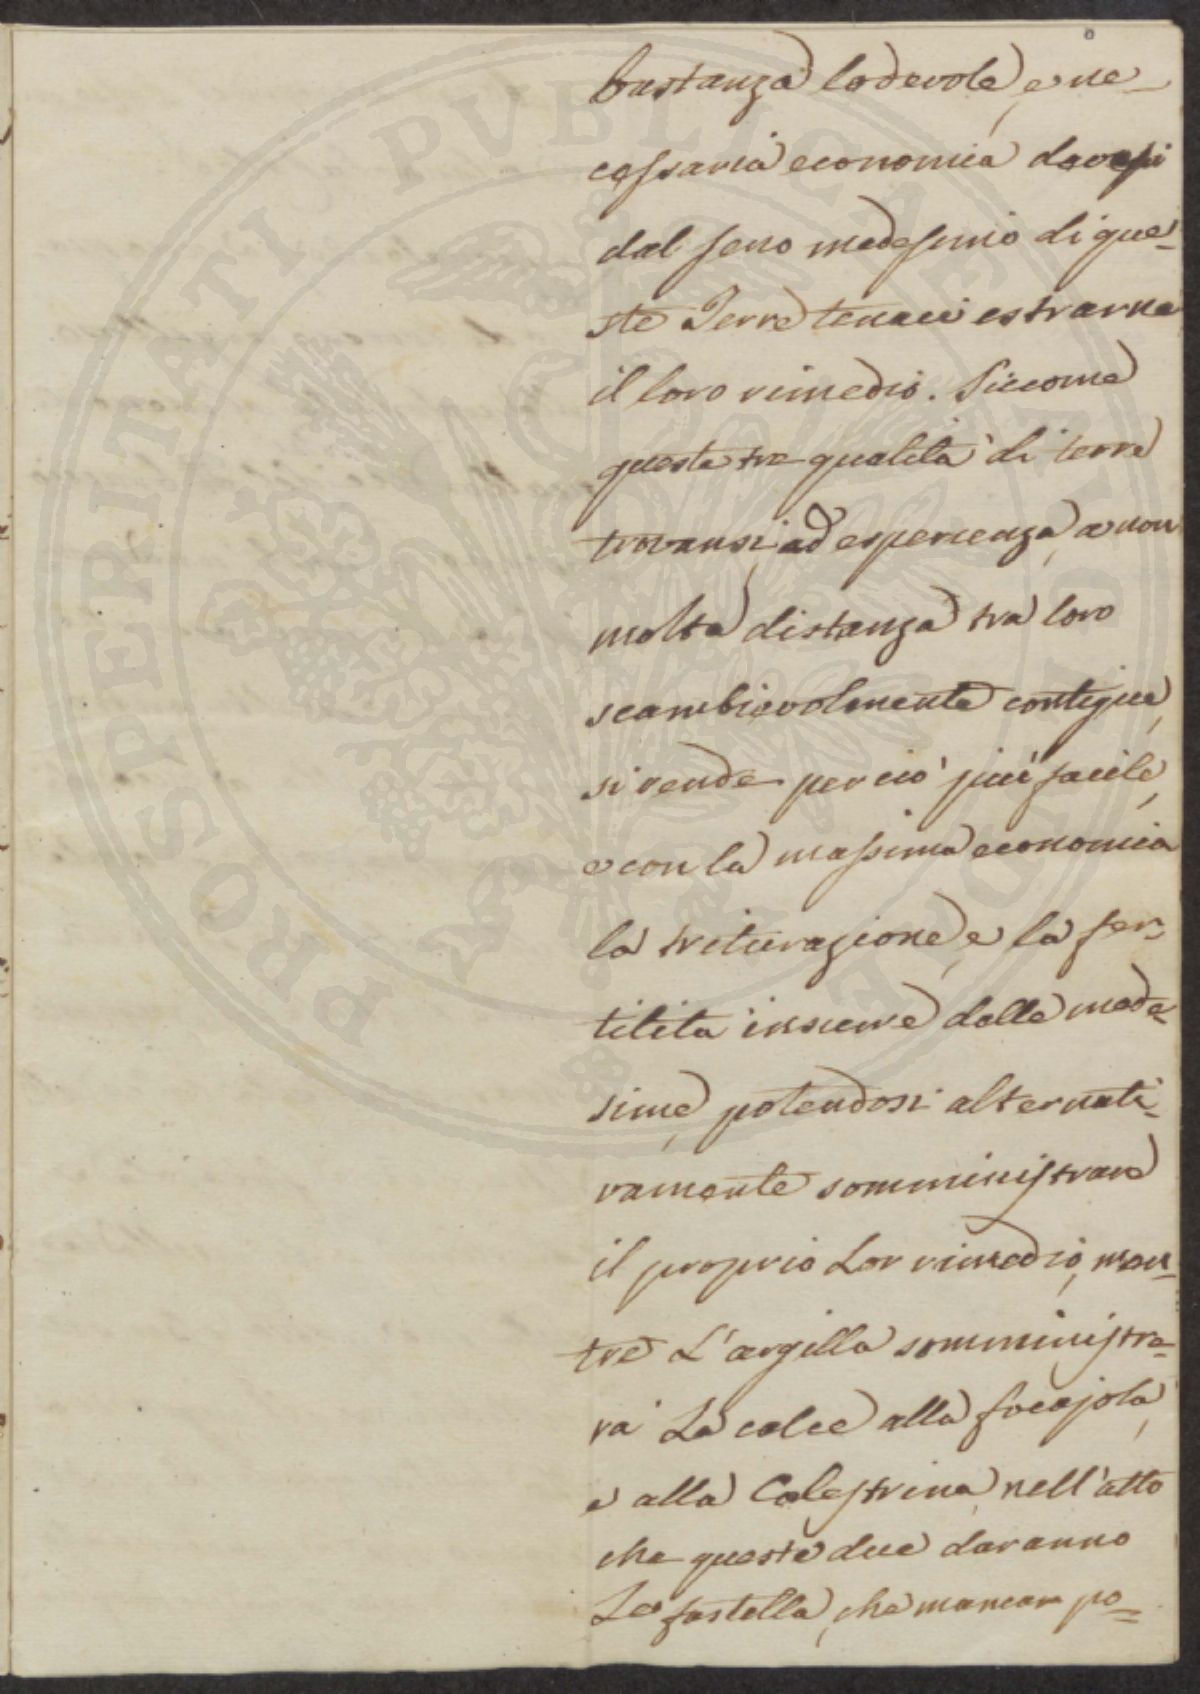 bastanza lodevole, e ne-
cessaria economia doversi
dal seno medesimo di que-
ste Terre tenaci estrarne
il loro rimedio. Siccome
queste tre qualità di terre
trovansi, ad esperienza, a non
molta distanza tra loro
scambievolmente contigue,
si rende perciò più facile,
e con la massima economia
la triturazione, e la fer-
tilità insieme delle mede-
sime, potendosi alternati-
vamente somministrare
il proprio Lor rimedio, men-
tre L'argilla somministre-
rà La calce alla focajola,
e alla Calestrina, nell'atto
che queste due daranno
Le fastella, che mancan po=
PROSPERITATI PVBLICAE AVGENDAE